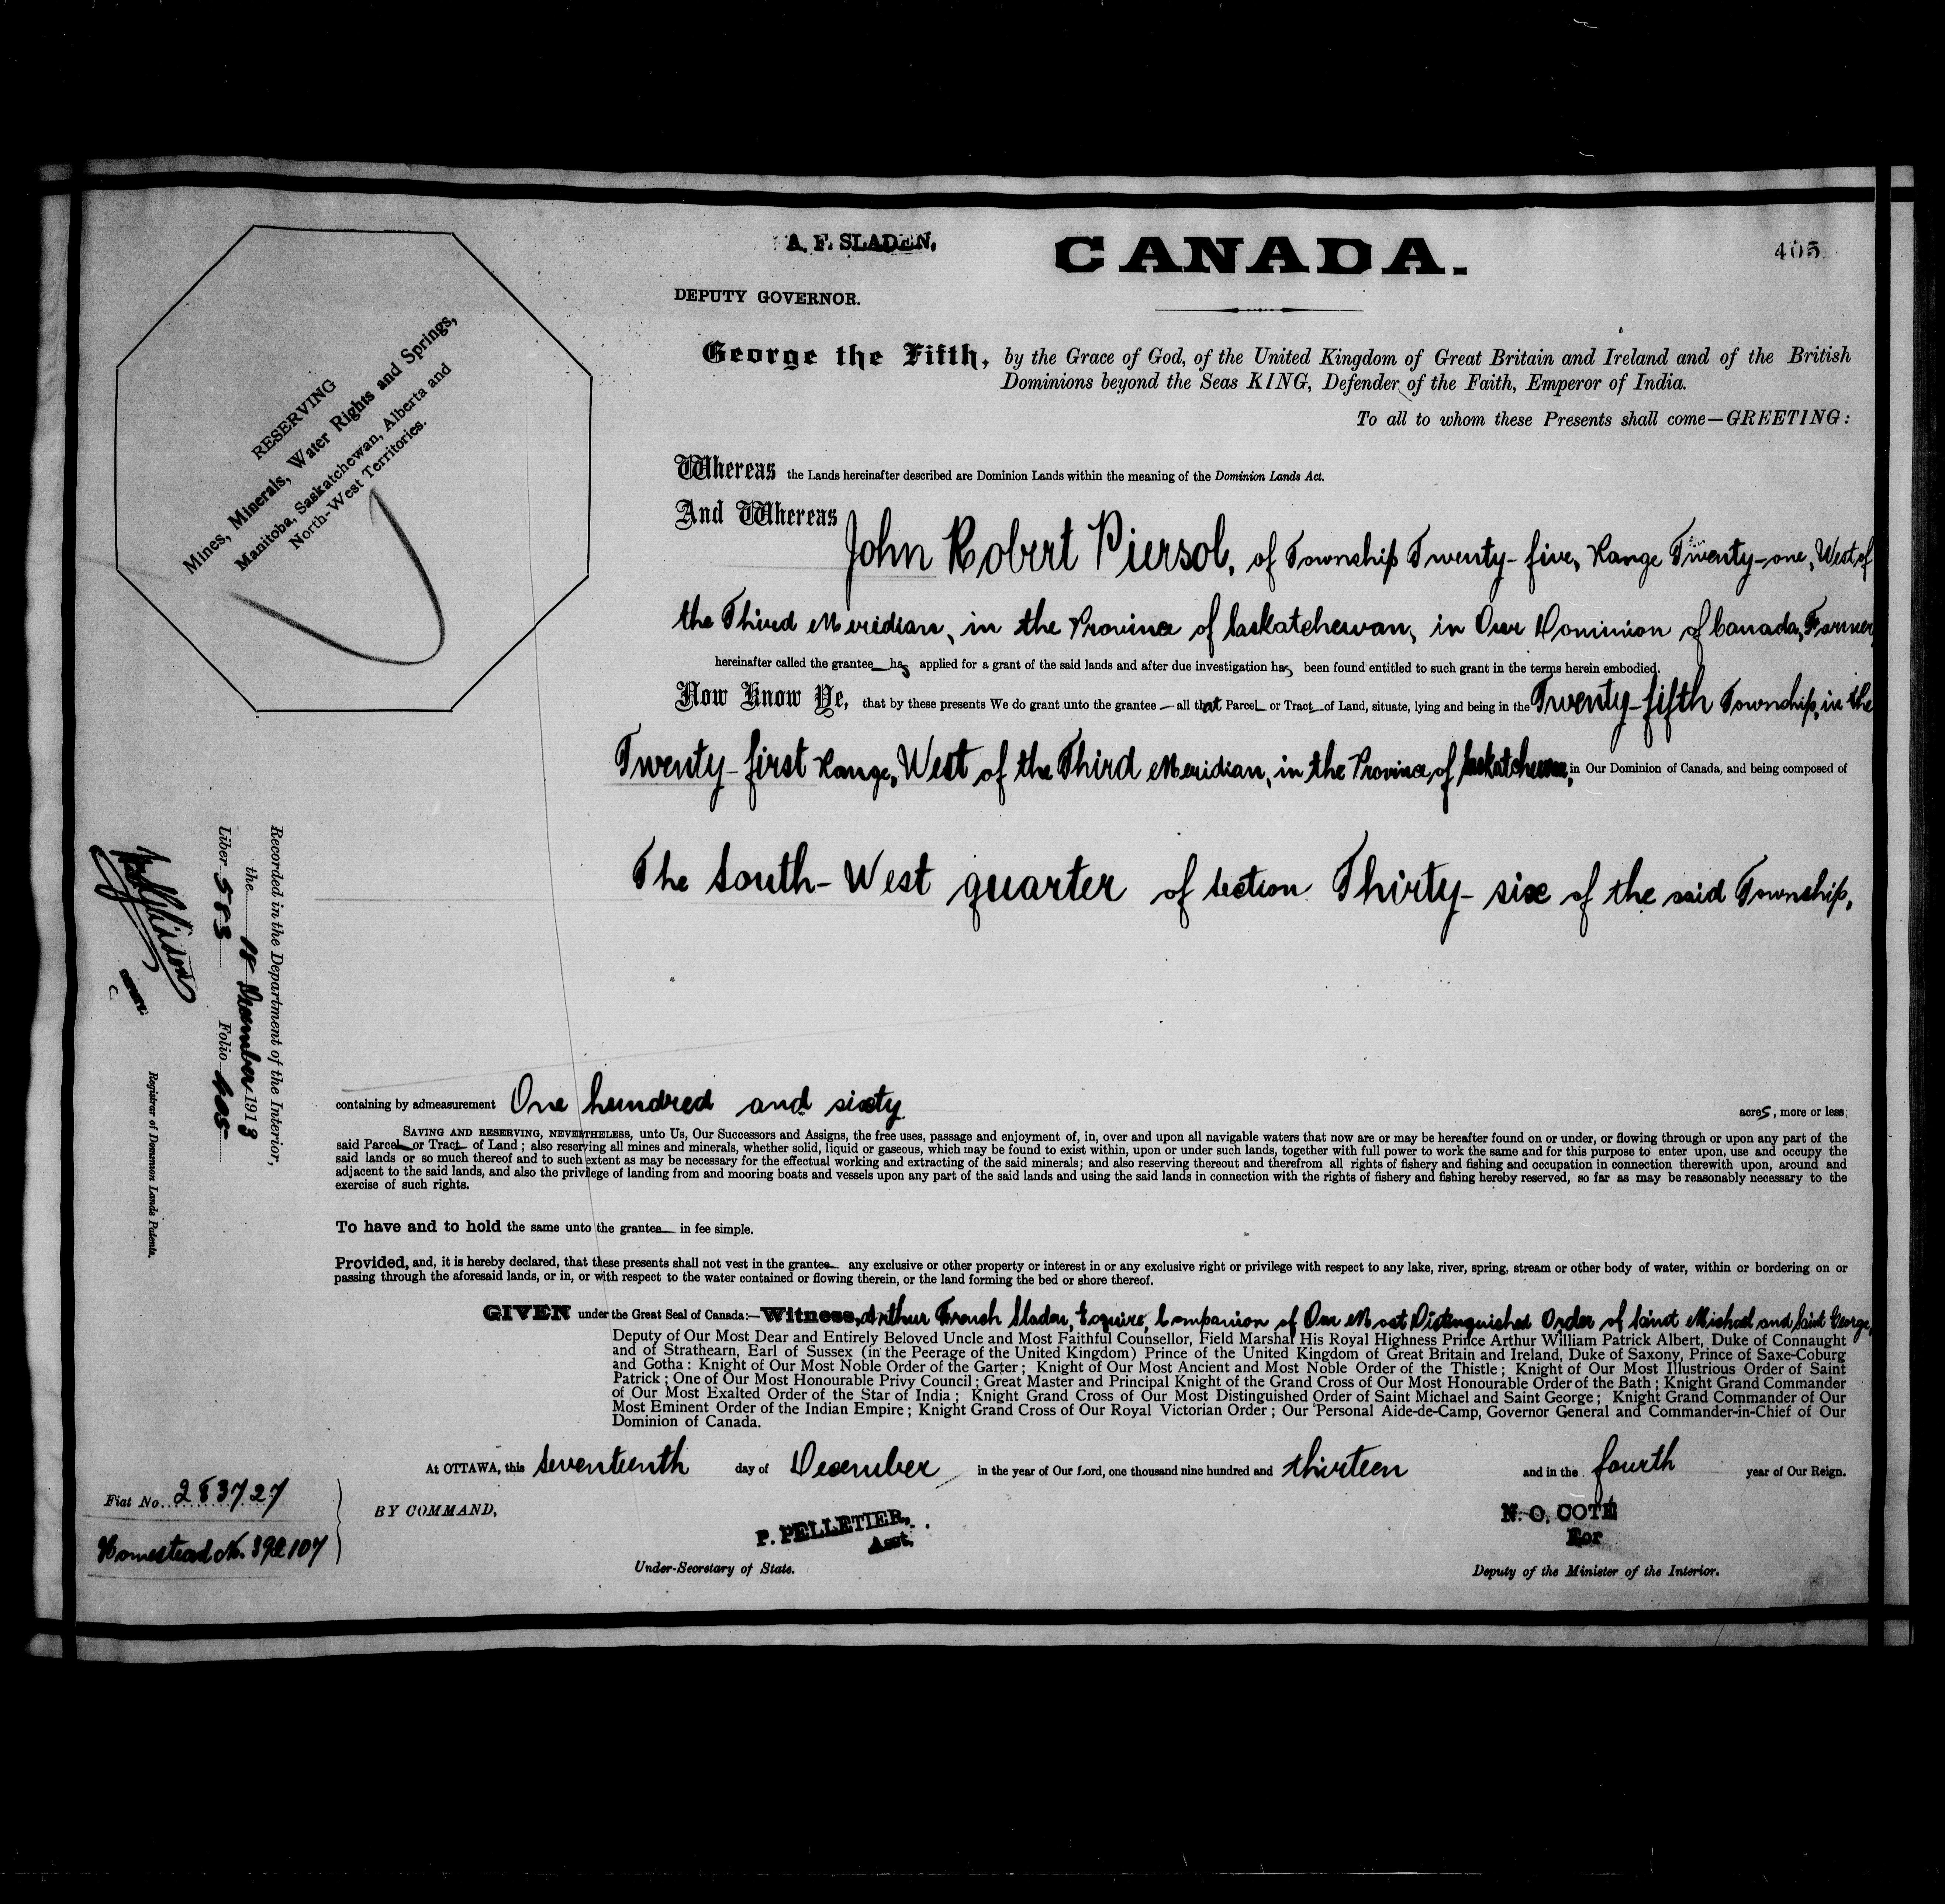 A. F. SLADEN,
CANADA.
405
DEPUTY GOVERNOR.
George the Fifth, by the Grace of God, of the United Kingdom of Great Britain and Ireland and of the British
Dominions beyond the Seas KING, Defender of the Faith, Emperor of India.
To all to whom these Presents shall come—GREETING:
RESERVING
Mines, Minerals, Water Rights and Springs,
Manitoba, Saskatchewan, Alberta and
North-West Territories.
Whereas the Lands hereinafter described are Dominion Lands within the meaning of the Dominion Lands Act.
And Whereas
John Robert Piersol, of Township Twenty-five, Range Twenty-one, West of
the Third Meridian, in the Province of Saskatchewan, in Our Dominion of Canada, Farmer
hereinafter called the grantee has applied for a grant of the said lands and after due investigation has been found entitled to such grant in the terms herein embodied.
Now Know Ye, that by these presents We do grant unto the grantee — all that Parcel or Tract of Land, situate, lying and being in the Twenty-fifth Township, in the
Twenty-first Range, West of the Third Meridian, in the Province of Saskatchewan, in Our Dominion of Canada, and being composed of
The South-West quarter of Section Thirty-six of the said Township,
Recorded in the Department of the Interior,
the 18 December 1913
Liber 583 Folio 405
Registrar of Dominion Lands Patents.
containing by admeasurement One hundred and sixty acres, more or less;
SAVING AND RESERVING, NEVERTHELESS, unto Us, Our Successors and Assigns, the free uses, passage and enjoyment of, in, over and upon all navigable waters that now are or may be hereafter found on or under, or flowing through or upon any part of the
said Parcel or Tract of Land; also reserving all mines and minerals, whether solid, liquid or gaseous, which may be found to exist within, upon or under such lands, together with full power to work the same and for this purpose to enter upon, use and occupy the
said lands or so much thereof and to such extent as may be necessary for the effectual working and extracting of the said minerals; and also reserving thereout and therefrom all rights of fishery and fishing and occupation in connection therewith upon, around and
adjacent to the said lands, and also the privilege of landing from and mooring boats and vessels upon any part of the said lands and using the said lands in connection with the rights of fishery and fishing hereby reserved, so far as may be reasonably necessary to the
exercise of such rights.
To have and to hold the same unto the grantee in fee simple.
Provided, and, it is hereby declared, that these presents shall not vest in the grantee any exclusive or other property or interest in or any exclusive right or privilege with respect to any lake, river, spring, stream or other body of water, within or bordering on or
passing through the aforesaid lands, or in, or with respect to the water contained or flowing therein, or the land forming the bed or shore thereof.
GIVEN under the Great Seal of Canada:—Witness, Arthur French Sladen, Esquire, Companion of Our Most Distinguished Order of Saint Michael and Saint George,
Deputy of Our Most Dear and Entirely Beloved Uncle and Most Faithful Counsellor, Field Marshal His Royal Highness Prince Arthur William Patrick Albert, Duke of Connaught
and of Strathearn, Earl of Sussex (in the Peerage of the United Kingdom) Prince of the United Kingdom of Great Britain and Ireland, Duke of Saxony, Prince of Saxe-Coburg
and Gotha: Knight of Our Most Noble Order of the Garter; Knight of Our Most Ancient and Most Noble Order of the Thistle; Knight of Our Most Illustrious Order of Saint
Patrick; One of Our Most Honourable Privy Council; Great Master and Principal Knight of the Grand Cross of Our Most Honourable Order of the Bath; Knight Grand Commander
of Our Most Exalted Order of the Star of India; Knight Grand Cross of Our Most Distinguished Order of Saint Michael and Saint George; Knight Grand Commander of Our
Most Eminent Order of the Indian Empire; Knight Grand Cross of Our Royal Victorian Order; Our Personal Aide-de-Camp, Governor General and Commander-in-Chief of Our
Dominion of Canada.
At OTTAWA, this Seventeenth day of December in the year of Our Lord, one thousand nine hundred and thirteen and in the fourth year of Our Reign.
Fiat No. 283727
BY COMMAND,
P. PELLETIER,
Asst.
Under-Secretary of State.
N. O. COTÉ
For
Deputy of the Minister of the Interior.
Homestead No.